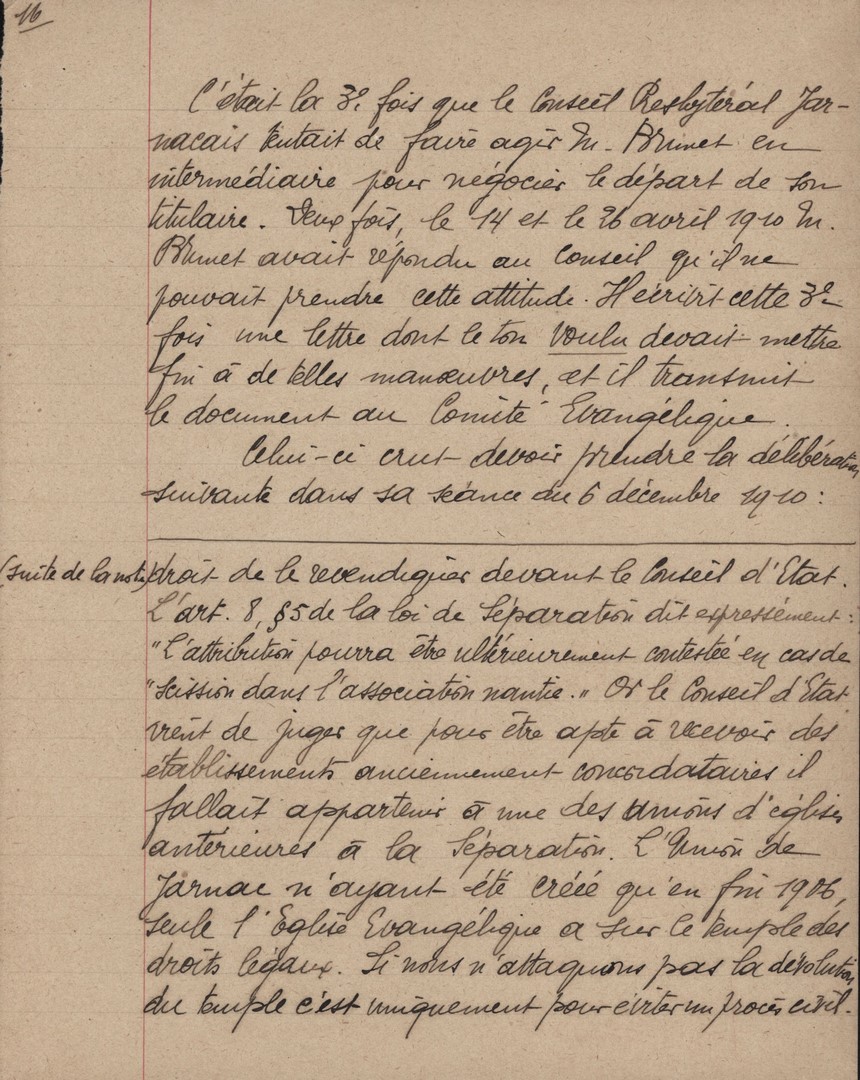 16
C'était la 3e fois que le Conseil Presbytéral Jar-
nacais tentait de faire agir M. Brunet en
intermédiaire pour négocier le départ de son
titulaire. Deux fois, le 14 et le 26 avril 1910 M.
Brunet avait répondu au Conseil qu'il ne
pouvait prendre cette attitude. Il écrivit cette 3e
fois une lettre dont le ton voulu devait mettre
fin à de telles manœuvres, et il transmit
le document au Comité Evangélique.
Celui-ci crut devoir prendre la délibération
suivante dans sa séance du 6 décembre 1910 :
(suite de la note) droit de le revendiquer devant le Conseil d'Etat.
L'art. 8, §5 de la loi de Séparation dit expressément :
"L'attribution pourra être ultérieurement contestée en cas de
"scission dans l'association nantie." Or le Conseil d'Etat
vient de juger que pour être apte à recevoir des
établissements anciennement concordataires il
fallait appartenir à une des Unions d'églises
antérieures à la Séparation. L'Union de
Jarnac n'ayant été créée qu'en fin 1906,
seule l'Eglise Evangélique a sur le temple des
droits légaux. Si nous n'attaquons pas la dévolution
du temple c'est uniquement pour éviter un procès civil.